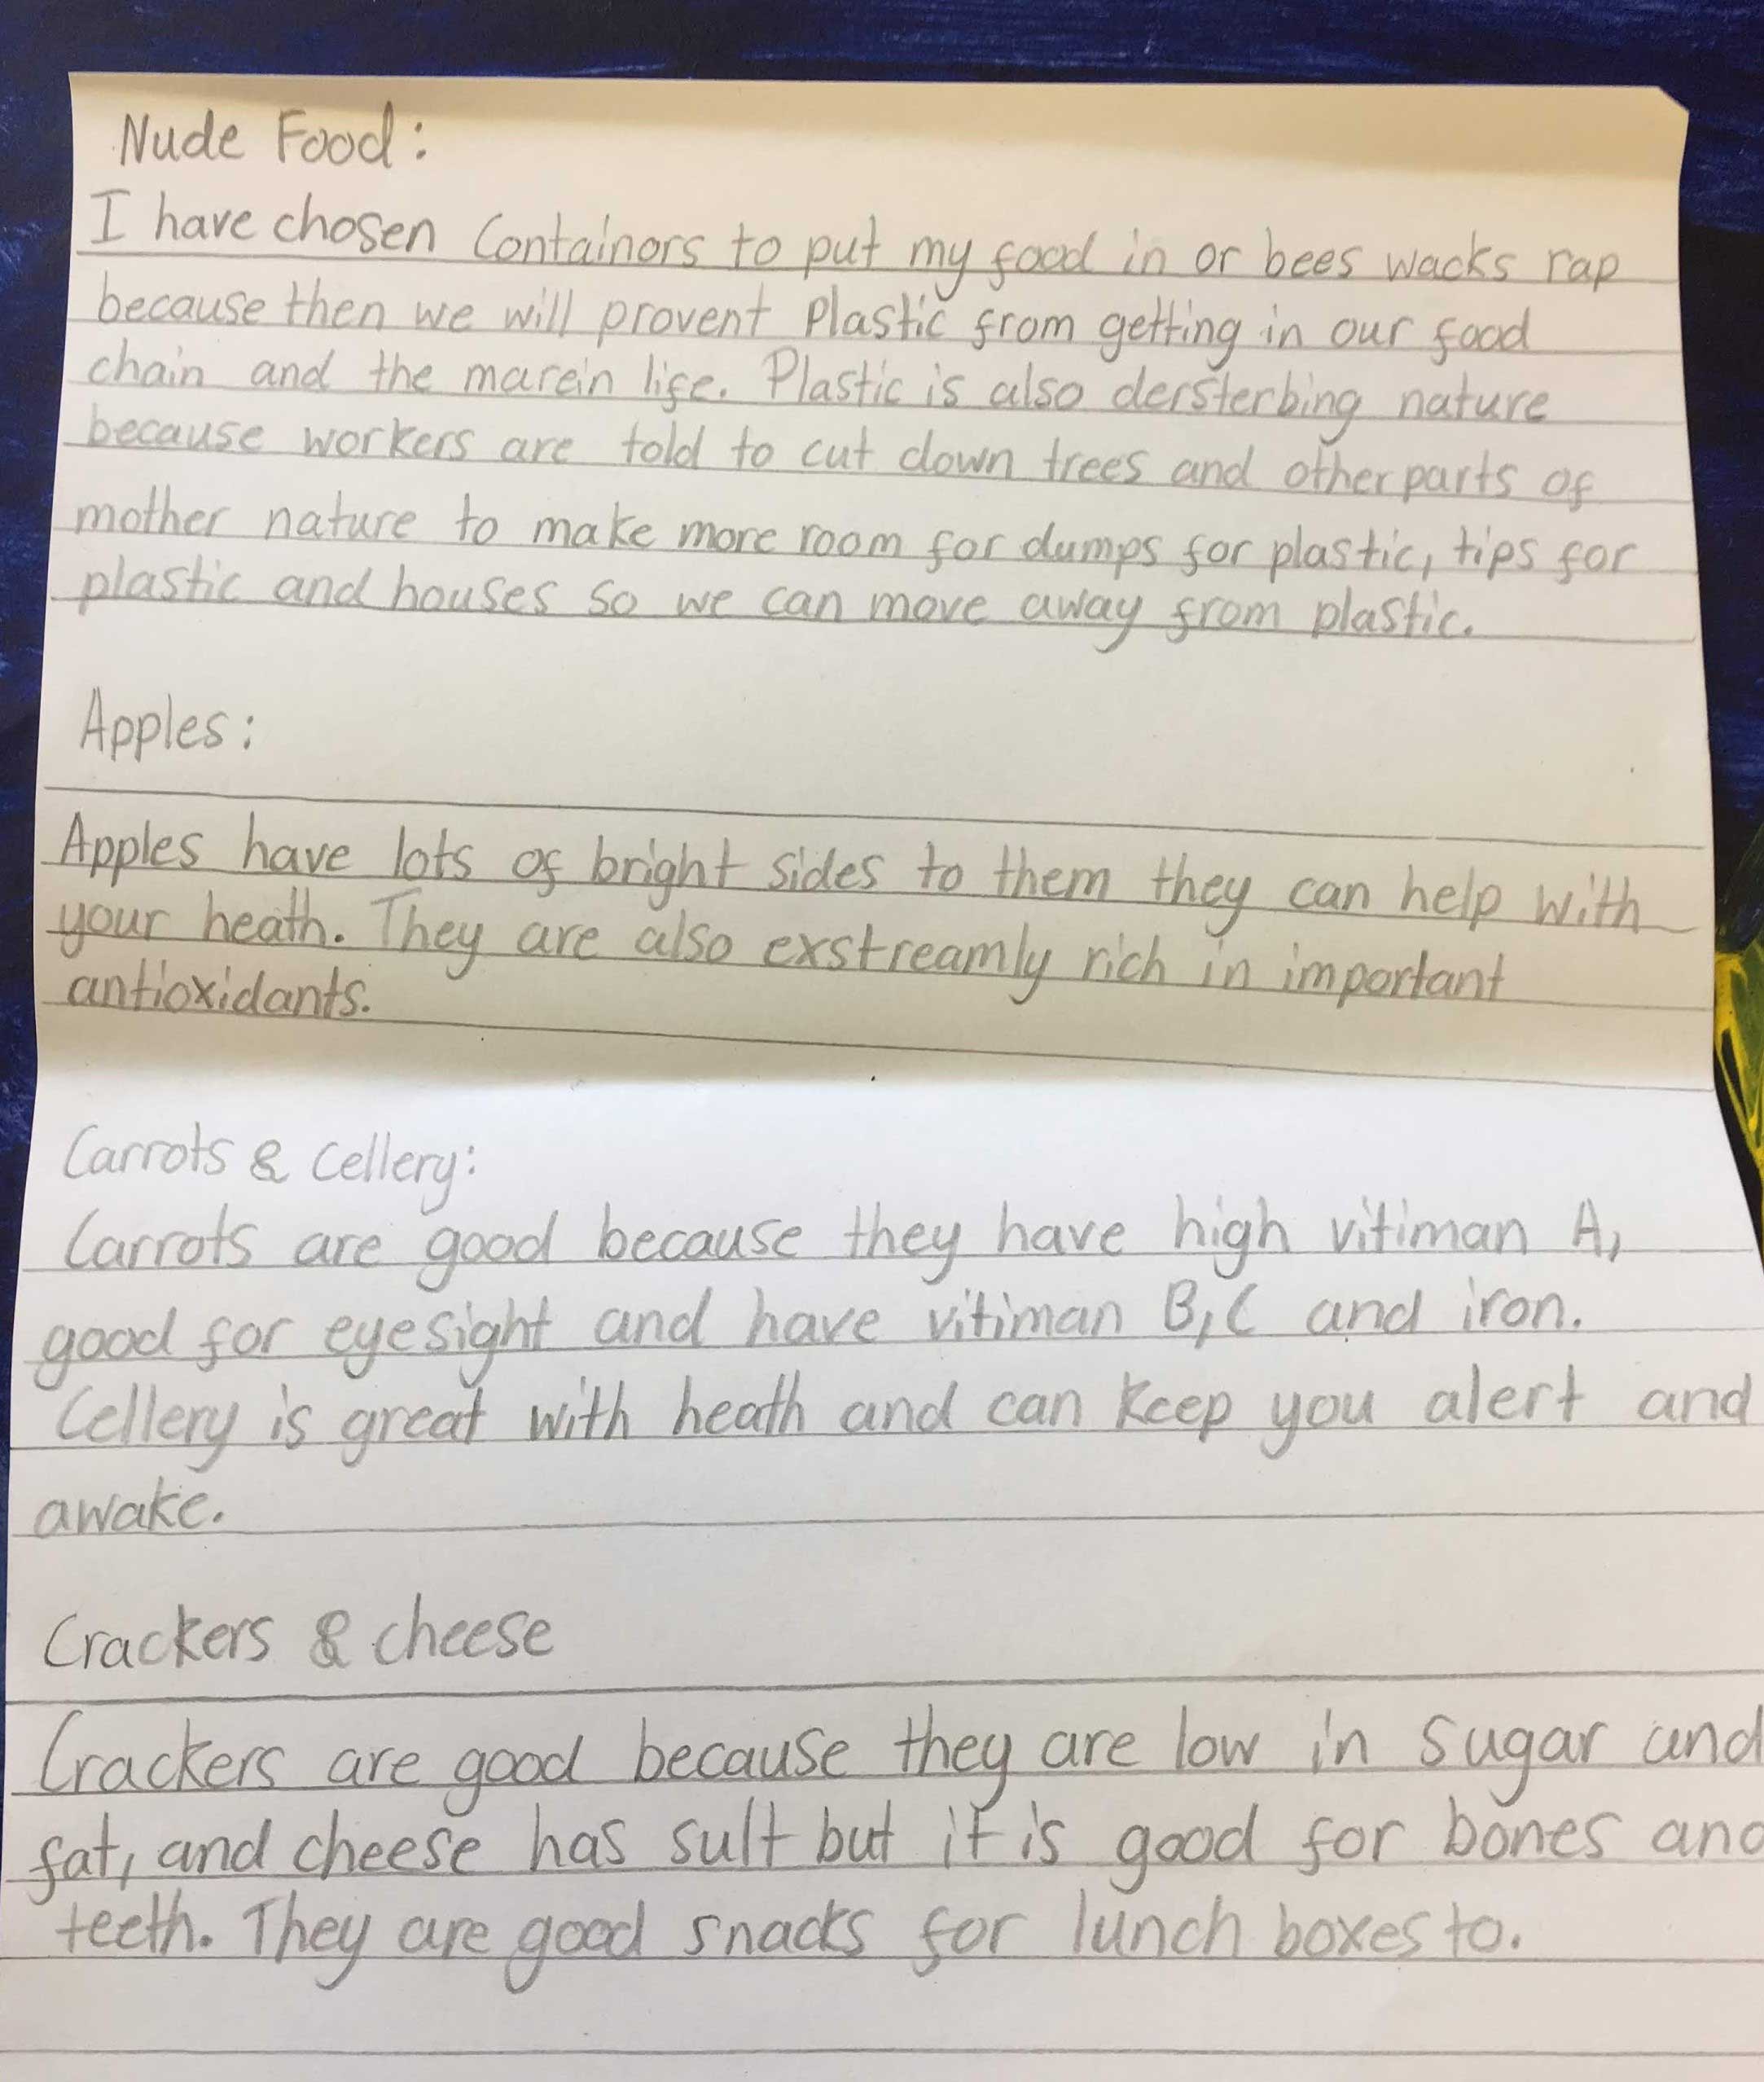 Nude Food:
I have chosen Containors to put my food in or bees wacks rap
because then we will provent Plastic from getting in our food
chain and the marein life. Plastic is also dersterbing nature
because workers are told to cut down trees and other parts of
mother nature to make more room for dumps for plastic, tips for
plastic and houses so we can move away from plastic.
Apples:
Apples have lots of bright sides to them they can help with
your heath. They are also exstreamly rich in important
antioxidants.
Carrots & Cellery:
Carrots are good because they have high vitiman A,
good for eyesight and have vitiman B, C and iron.
Cellery is great with heath and can keep you alert and
awake.
Crackers & cheese
Crackers are good because they are low in sugar and
fat, and cheese has sult but it is good for bones and
teeth. They are good snacks for lunch boxes to.